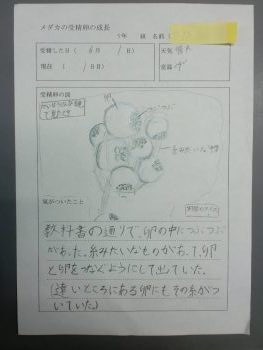 メダカの受精卵の成長
5年 組 名前(
受精した日( 6月 1日)
天気 晴れ
現在 ( / )
室温
受精卵の図
つぶつぶ
糸みたいな物
気がついたこと
実際のサイズ
教科書の通りで、卵の中につぶつぶ
があった。糸みたいなものがあって、卵
と卵をつなぐようにして出ていた。
(遠いところにある卵にもその糸がつ
いていた。)